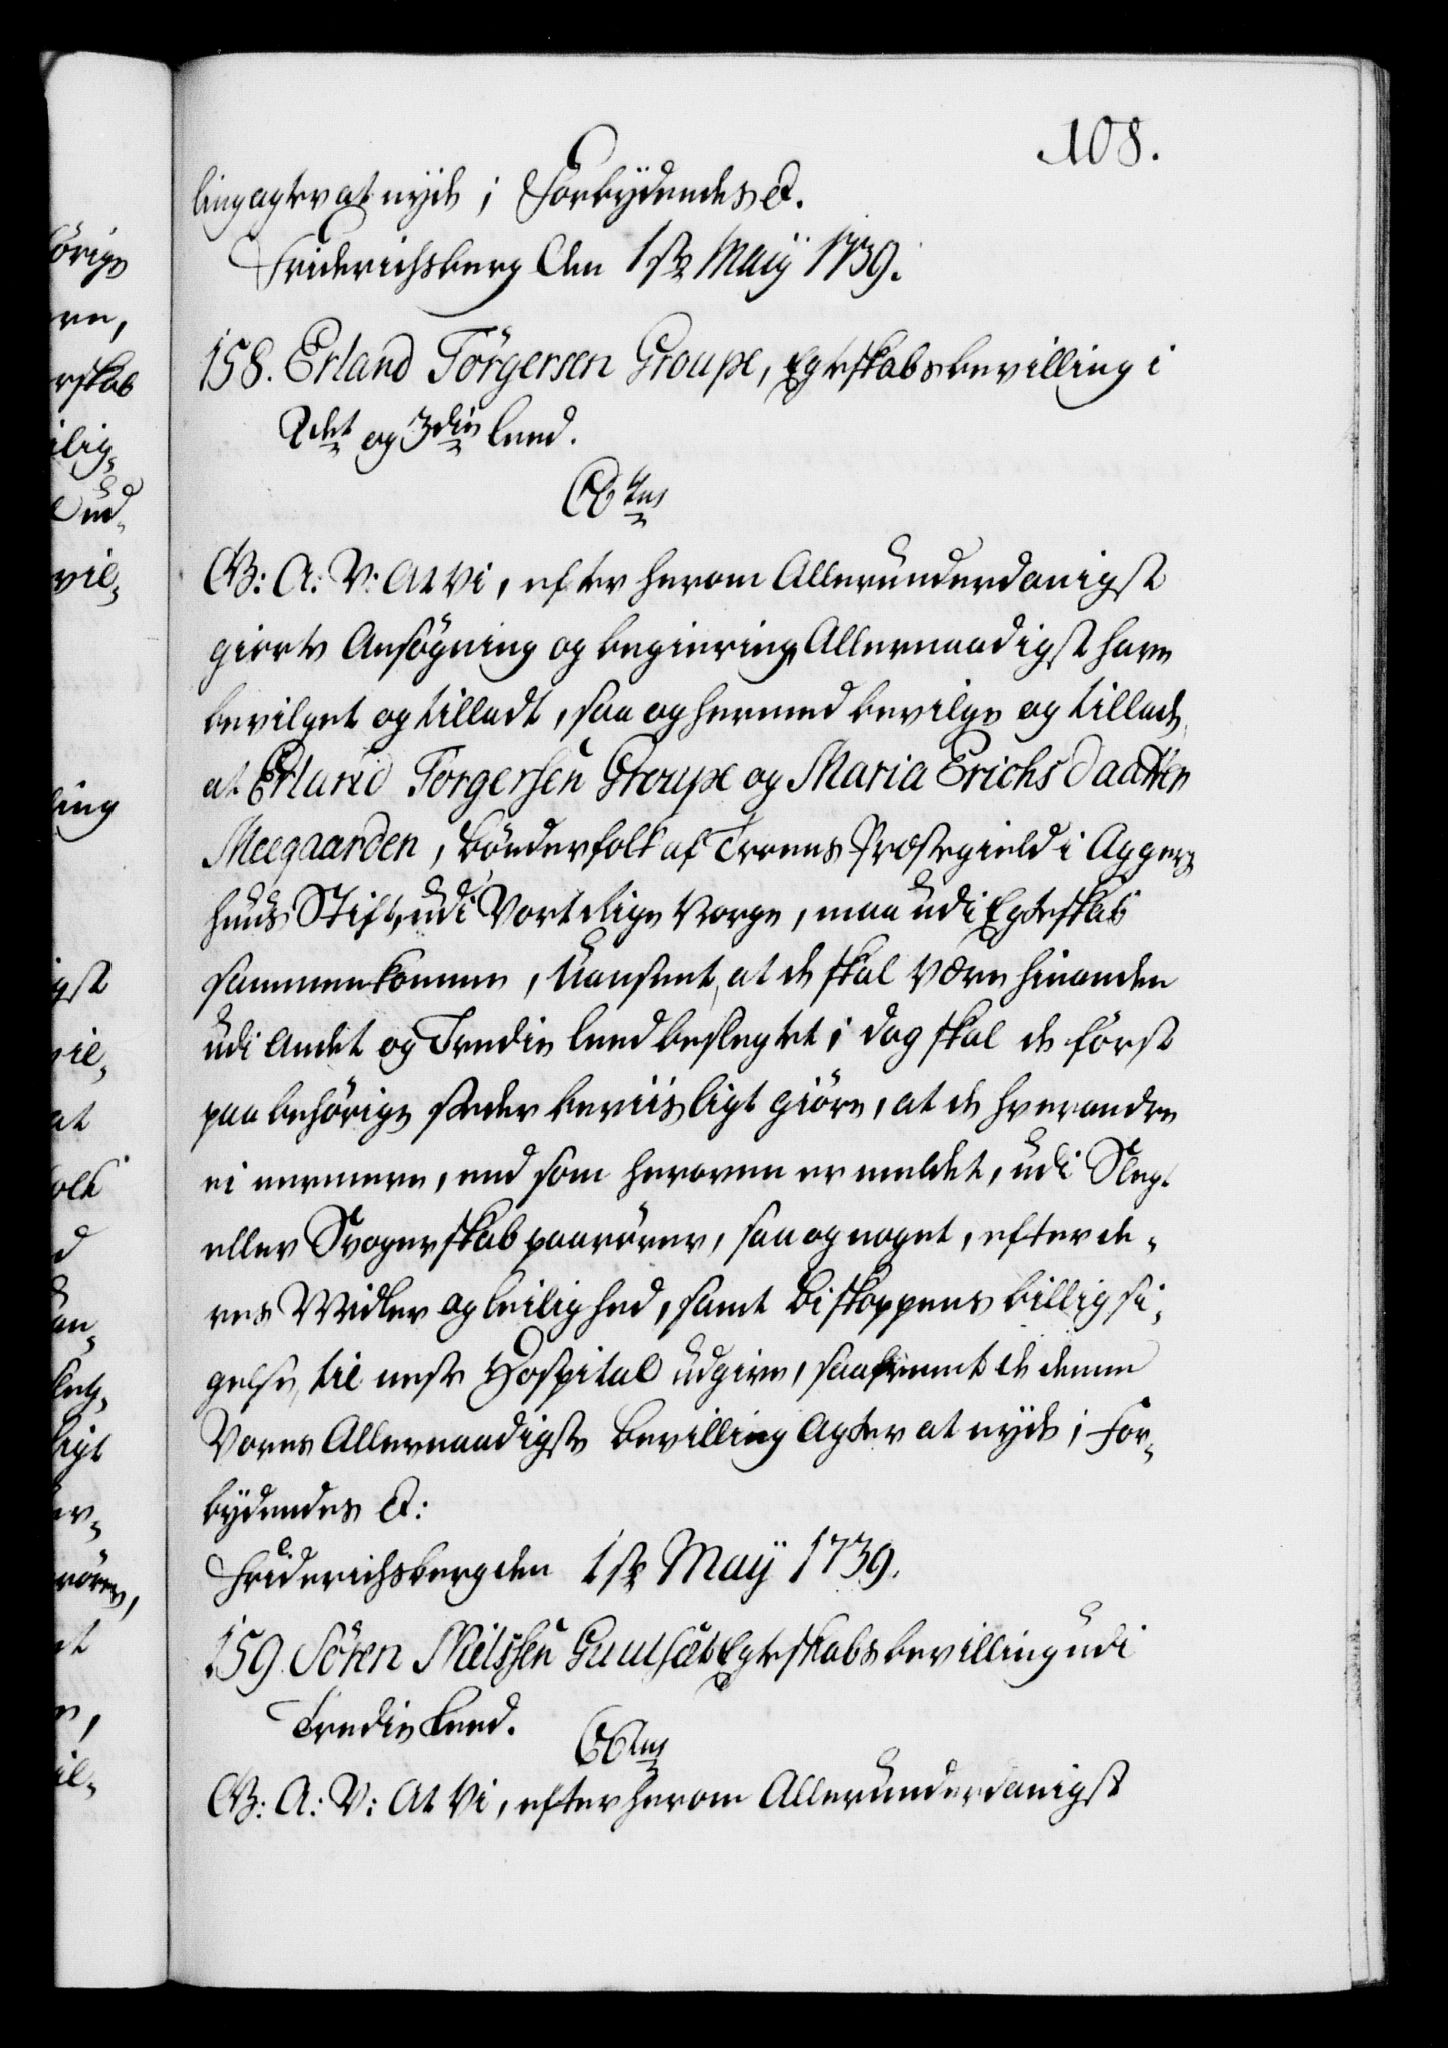 108.
ling agter at nyde; Forbydendes &.
Friderichsberg den 1ste Maij 1739.
158. Erland Törgersen Groupe, Egteskabs bevilling i
2det og 3die leed.
C6tus
G: A: V: At Vi, efter herom Allerunderdanigst
giorte Ansøgning og begiering Allernaadigst have
bevilget og tilladt, saa og hermed bevilge og tillade,
at Erland Torgersen Groupe og Maria Erichs Daatter
Meegaarden, bönderfolk af Tronens Præstegield i Agger=
huus Stift, udi Vort Rige Norge, maa udi Egteskab
sammenkomme, Uanseet, at de skal være hinanden
udi Andet og Tredie leed beslegtet; dog skal de først
paa behörige stæder beviisligt giöre, at de hverandre
ei nermere, end som heroven er meldet, udi Slegt
eller Svogerskab paarörer, saa og noget, efter de=
res Midler og leilighed, samt Biskoppens billig si=
gelse, til neste Hospital udgive, saafremt de denne
Vores Allernaadigste bevilling Agter at nyde; For=
bydendes &:
Friderichsberg den 1ste Maij 1739.
159. Sören Nielssen Egteskabs bevilling udi
Tredie leed.
C6tus
G: A: V: At Vi, efter herom Allerunderdanigst
örige
ren,
rskab
ilig=
ud=
vil=
ling
igst
vil=
at
olk
d
an=
ligt
er=
rörer,
et
il=